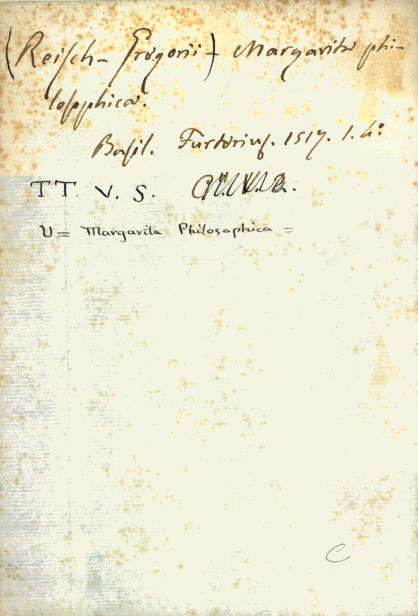 (Reisch- Gregorii) Margarita phi-
losophica.
Basil. Furterius. 1517. 1. 4º
TT. V. S.
U= Margarita Philosophica =
C